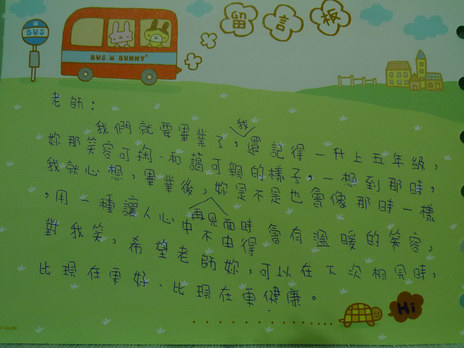 留言板
BUS
BUS & BUNNY
老師：
我們就要畢業了，我還記得一升上五年級，
妳那笑容可掬、和藹可親的樣子，一想到那時，
我就心想，畢業後，妳是不是也會像那時一樣
，用一種讓人心中不由得會有溫暖的笑容，
再見面時
對我笑，希望老師妳，可以在下次相見時，
比現在更好、比現在更健康。
Hi